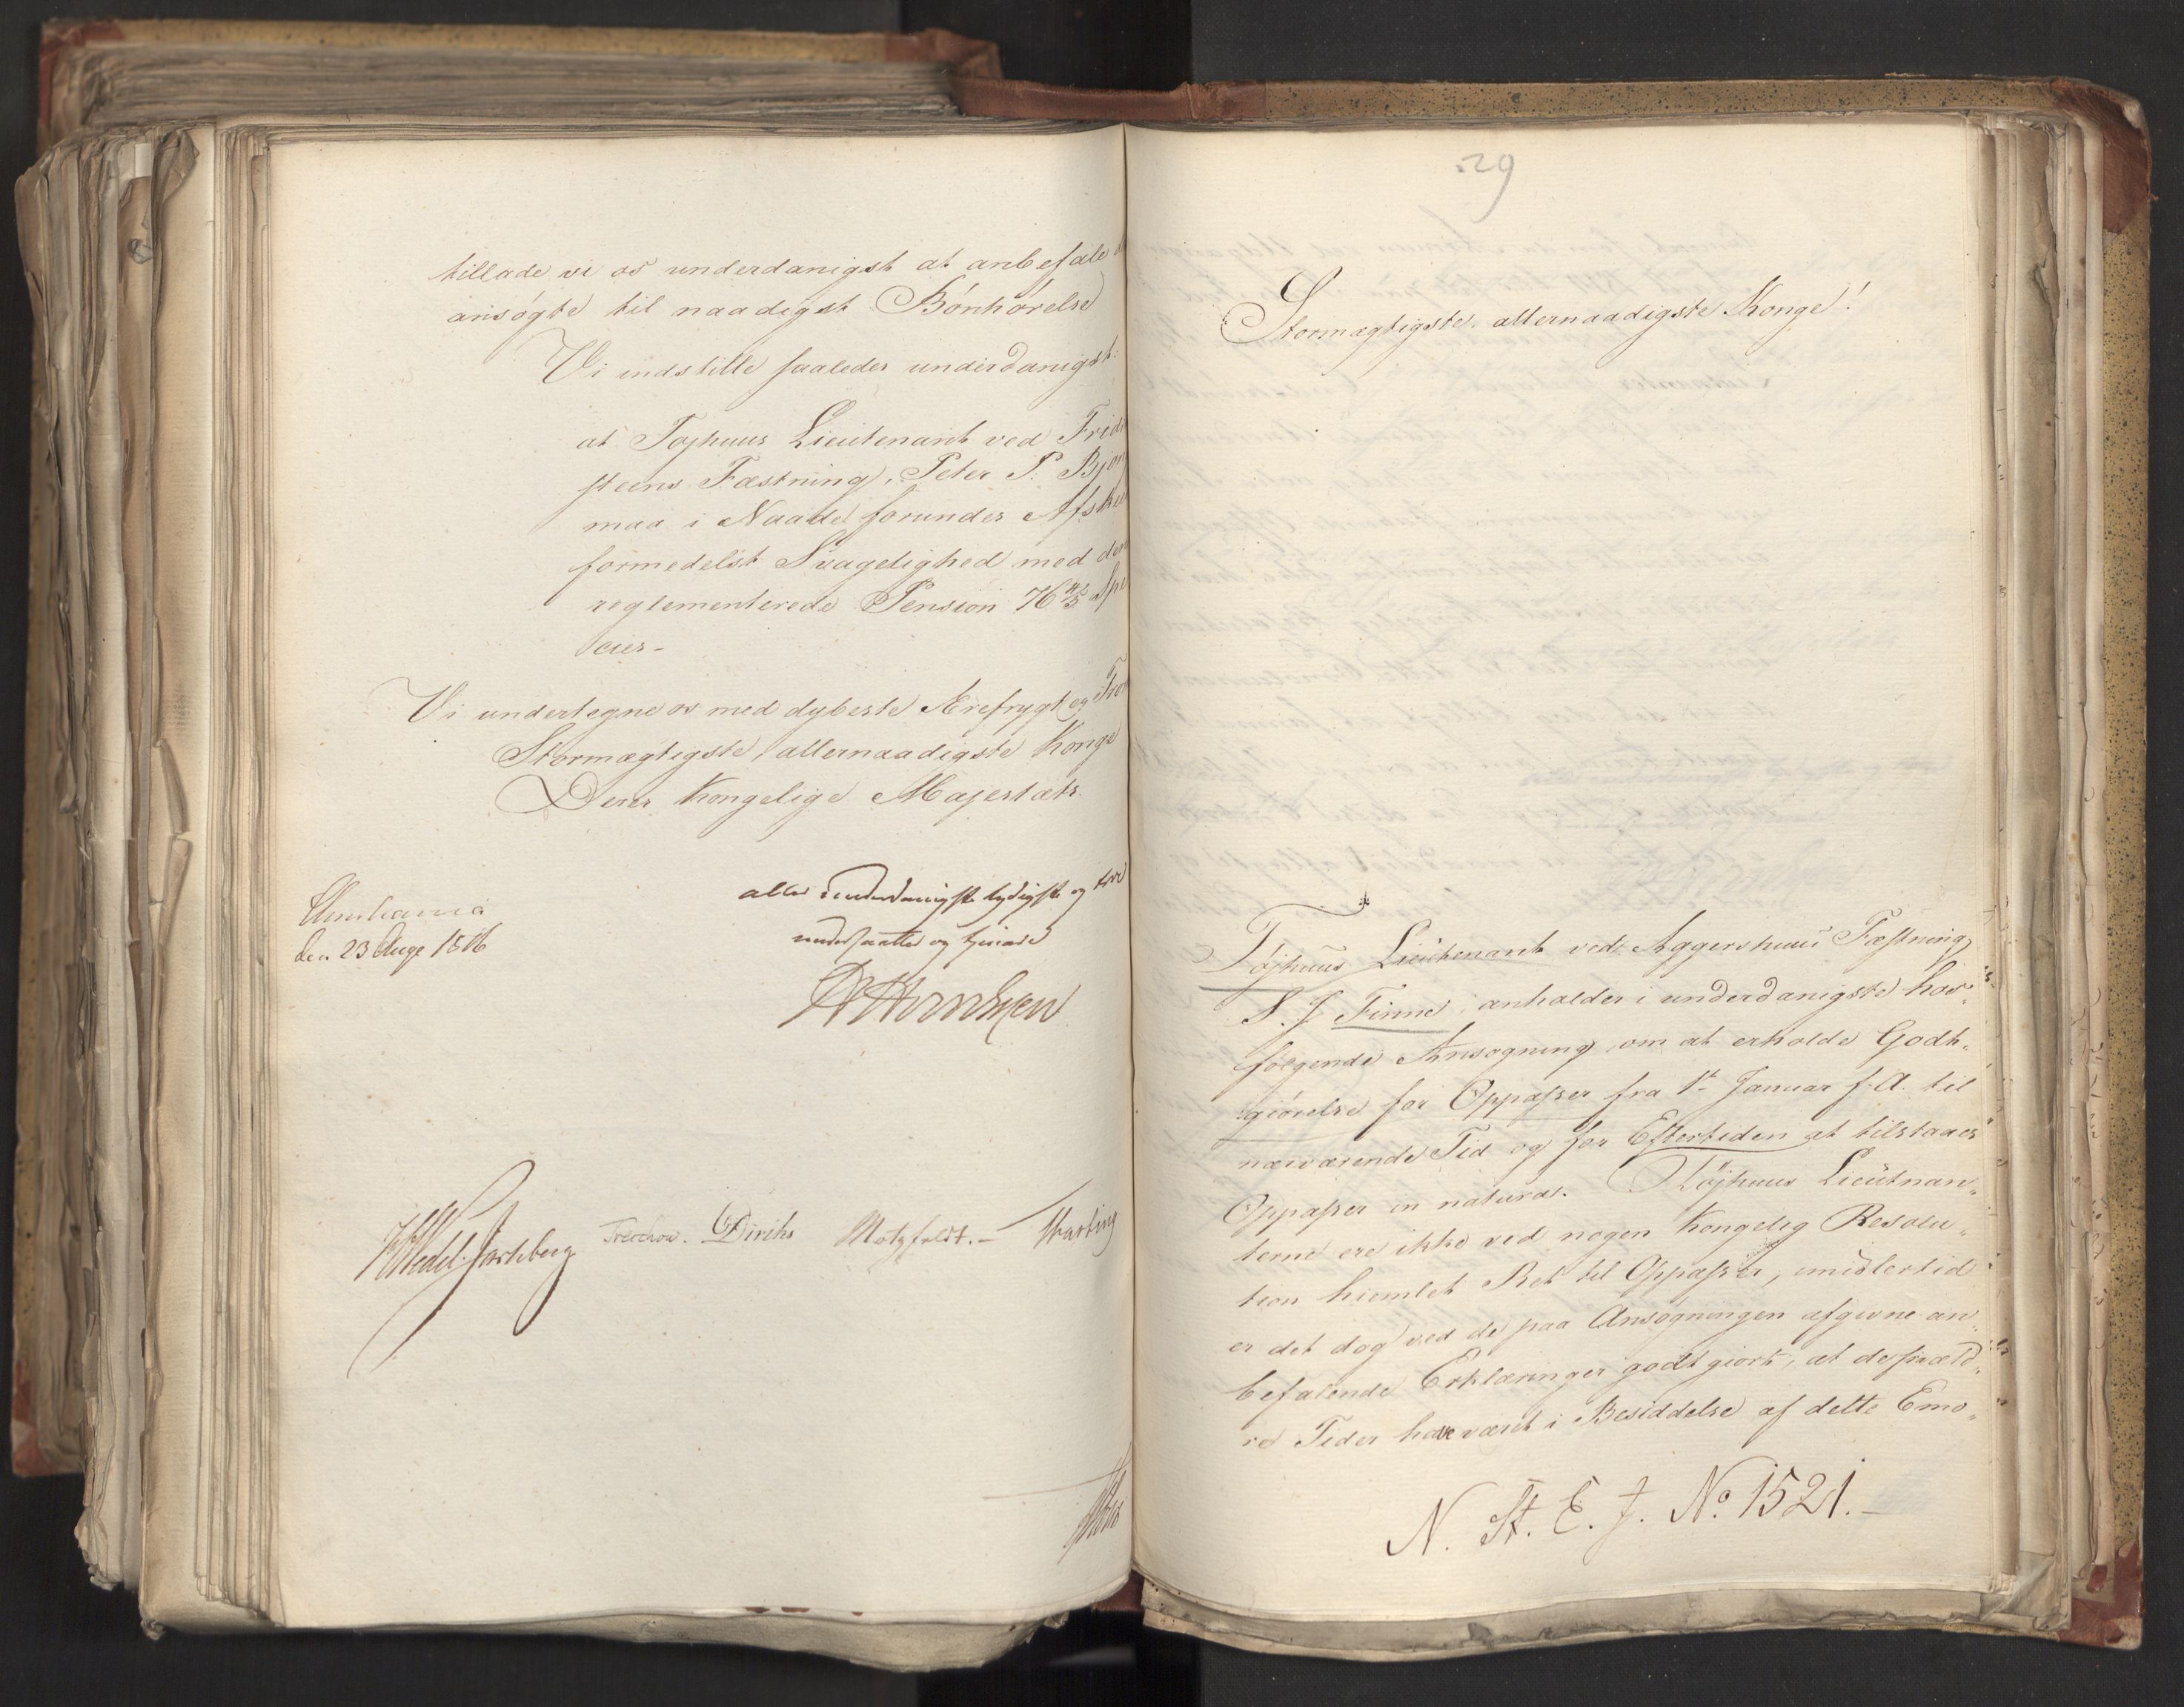 tillade vi os underdanigst at anbefale
ansøgte til naadigst Bønhørelse
Vi indstille saaledes underdanigst:
at Tøjhuus Lieutenant ved Frid
steens Fæstning, Peter P. Bjør
maa i Naade forundes Afske
formedelst Svagelighed med den
reglementerede Pension 76 4/5 Spe
cier-
Vi undertegne os med dybeste Ærefrygt og Tro
Stormægtigste, allernaadigste Konge
Deres Kongelige Majestæts
Christiania
den 23 Aug 1816
aller underdanigste lydigste og troe
undersaatter og tjenere
Wedel Jarlsberg Treschow. Diriks Motzfeldt.- Harting
29
Stormægtigste, allernaadigste Konge!
Tøjhuus Lieutenant ved Aggershuus Fæstning
S. J Finne, anholder i underdanigste hos-
følgende Ansøgning om at erholde Godt-
giørelse for Oppasser fra 1te Januar f. A. til
nærværende Tid og for Eftertiden at tilstaaes
Oppasser in natura. Tøjhuus Lieutnan-
terne ere ikke ved nogen Kongelig Resolu-
tion hiemlet Ret til Oppasser, imidlertid
er det dog ved de paa Ansøgningen afgivne an-
befalende Erklæringer godtgiort, at de fra æld-
re Tider have været i Besiddelse af dette Emo-
N. St. E. J. No. 1521.-